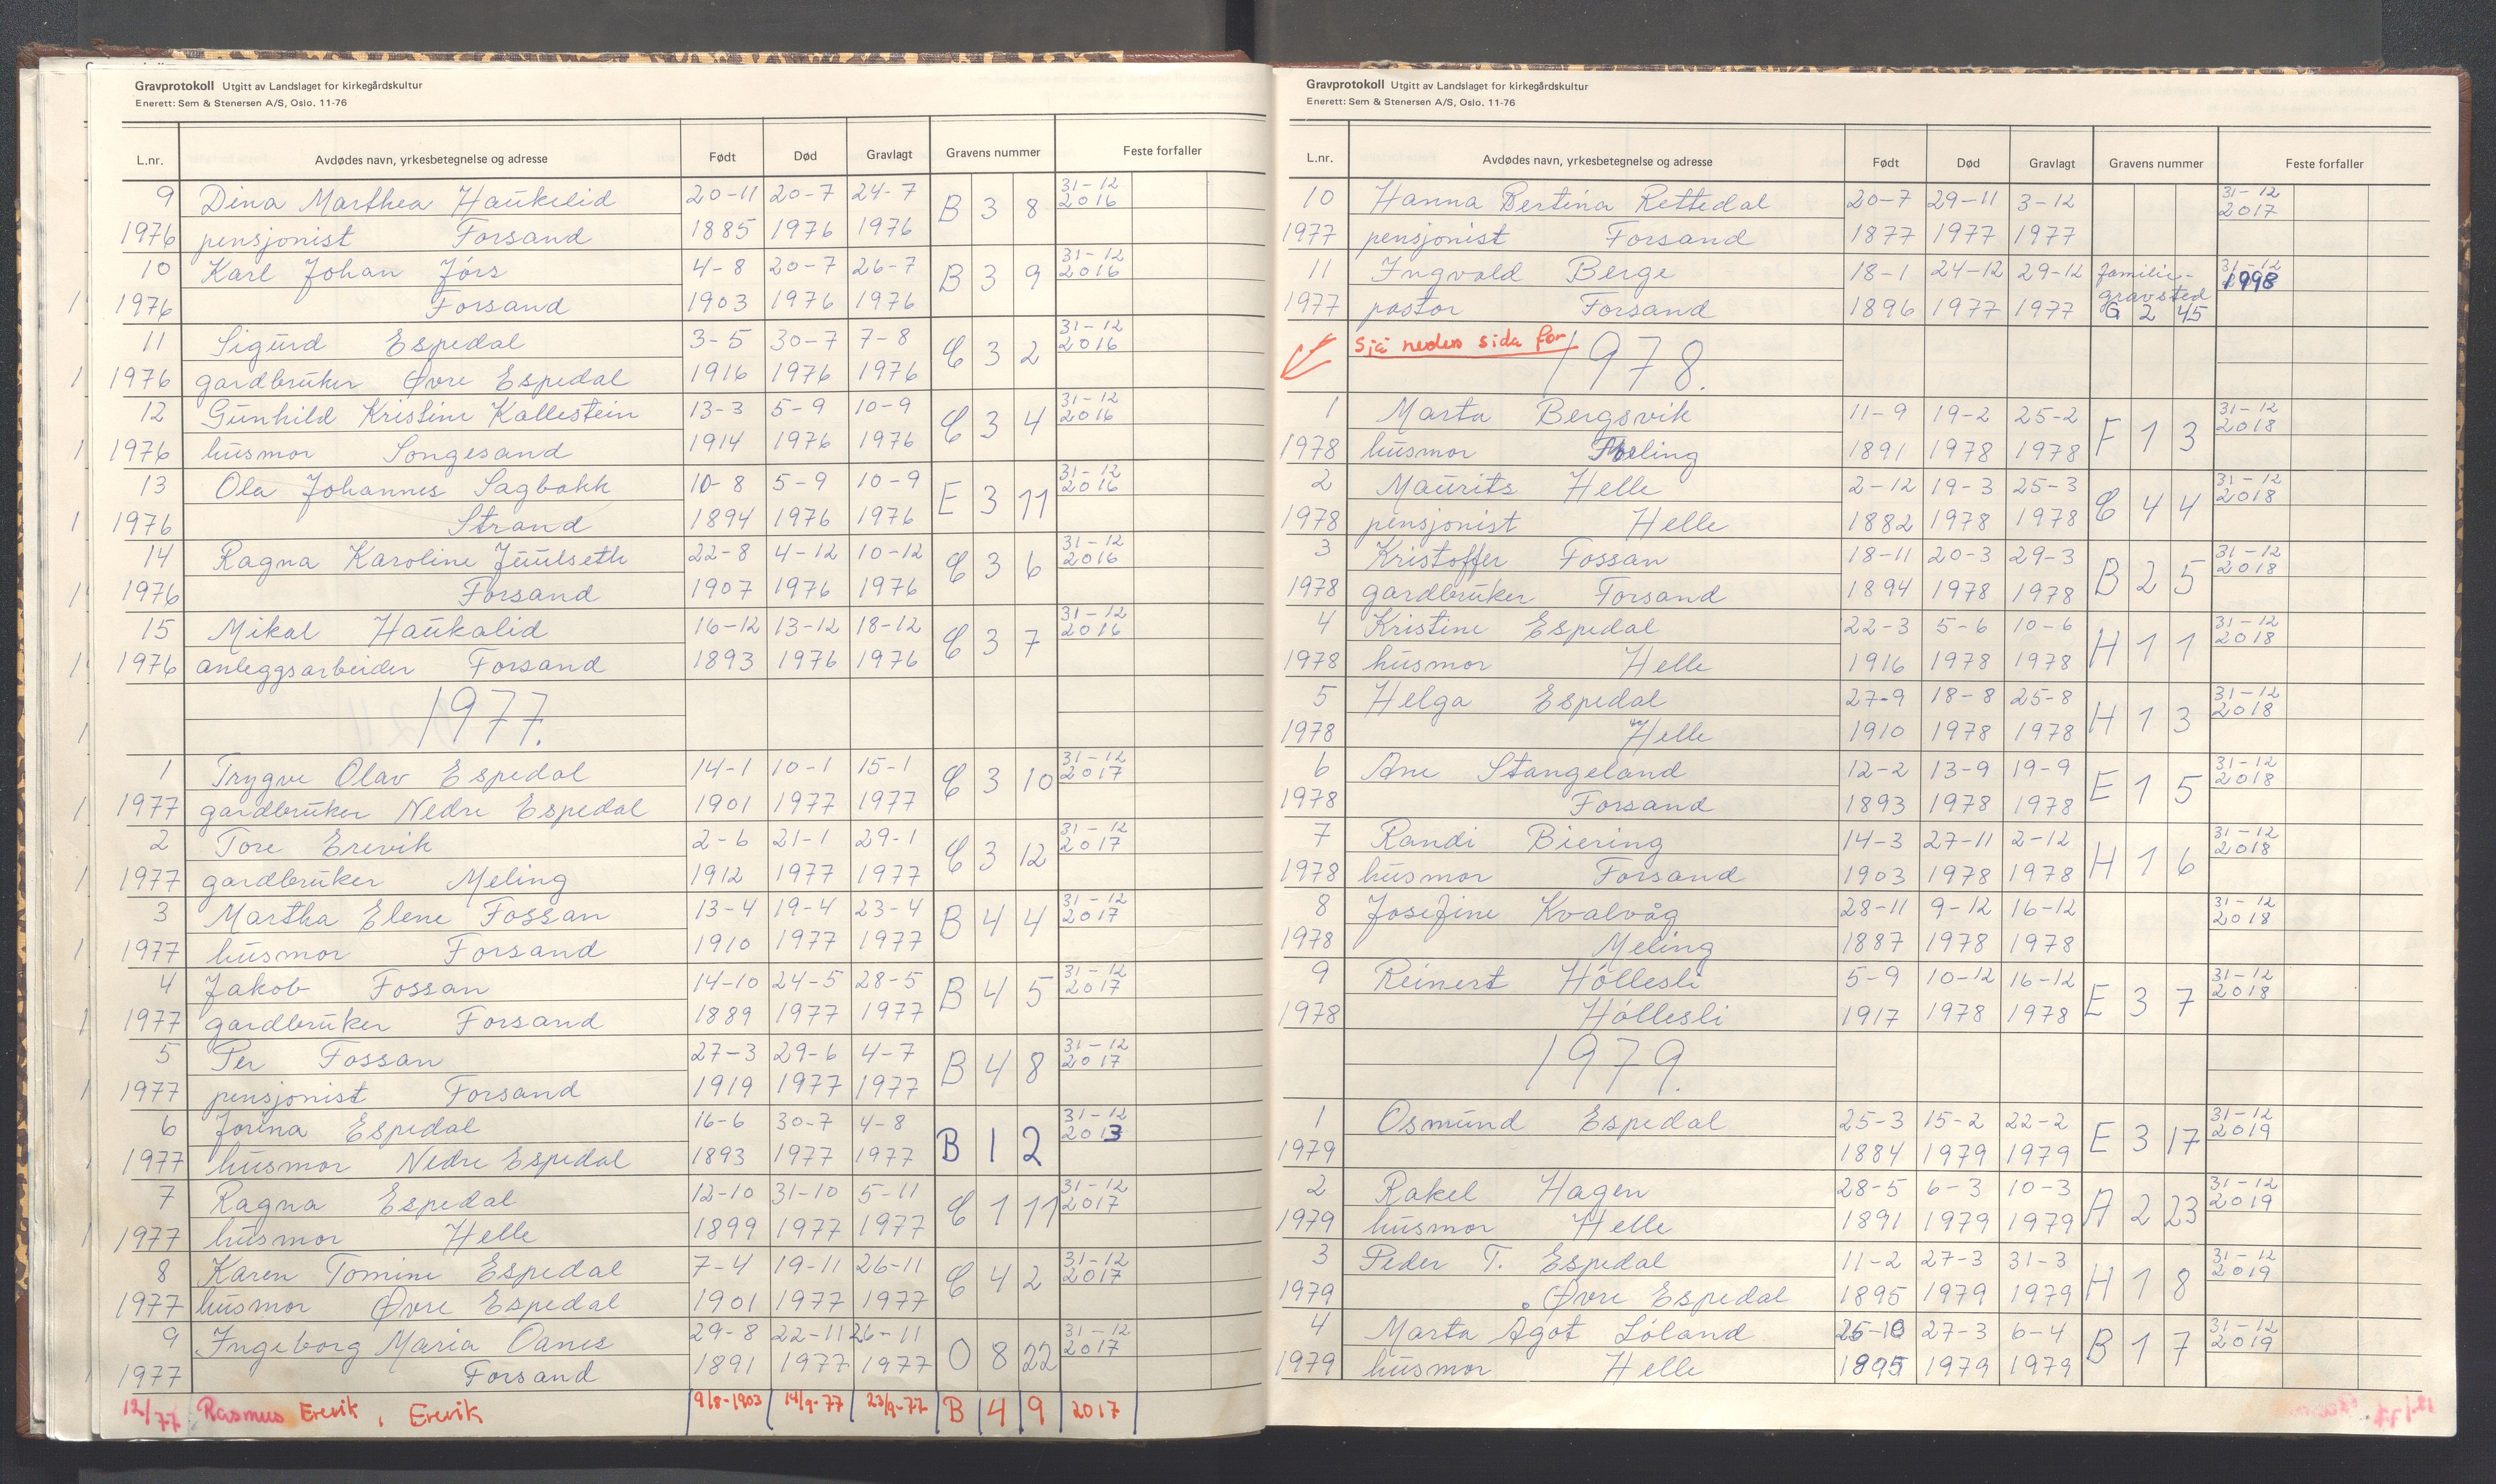 Gravprotokoll Utgitt av Landslaget for kirkegårdskultur
Enerett: Sem & Stenersen A/S, Oslo. 11-76
L.nr. Avdødes navn, yrkesbetegnelse og adresse Født Død Gravlagt Gravens nummer Feste forfaller
9 Dina Marthea Haukelid 20-11 20-7 24-7 B 3 8 31-12 2016
1976 pensjonist Forsand 1885 1976 1976
10 Karl Johan Jórs 4-8 20-7 26-7 B 3 9 31-12 2016
1976 Forsand 1903 1976 1976
11 Sigurd Espedal 3-5 30-7 7-8 C 3 2 31-12 2016
1976 gardbruker Øvre Espedal 1916 1976 1976
12 Gunhild Kristine Kallestein 13-3 5-9 10-9 C 3 4 31-12 2016
1976 husmor Songesand 1914 1976 1976
13 Ola Johannes Sagbakk 10-8 5-9 10-9 E 3 11 31-12 2016
1976 Strand 1894 1976 1976
14 Ragna Karoline Juulseth 22-8 4-12 10-12 C 3 6 31-12 2016
1976 Forsand 1907 1976 1976
15 Mikal Haukalid 16-12 13-12 18-12 C 3 7 31-12 2016
1976 anleggsarbeider Forsand 1893 1976 1976
1977.
1 Trygve Olav Espedal 14-1 10-1 15-1 C 3 10 31-12 2017
1977 gardbruker Nedre Espedal 1901 1977 1977
2 Tore Erevik 2-6 21-1 29-1 C 3 12 31-12 2017
1977 gardbruker Meling 1912 1977 1977
3 Martha Elene Fossan 13-4 19-4 23-4 B 4 4 31-12 2017
1977 husmor Forsand 1910 1977 1977
4 Jakob Fossan 14-10 24-5 28-5 B 4 5 31-12 2017
1977 gardbruker Forsand 1889 1977 1977
5 Per Fossan 27-3 29-6 4-7 B 4 8 31-12 2017
1977 pensjonist Forsand 1919 1977 1977
6 Jorina Espedal 16-6 30-7 4-8 B 1 2 31-12 2013
1977 husmor Nedre Espedal 1893 1977 1977
7 Ragna Espedal 12-10 31-10 5-11 C 1 11 31-12 2017
1977 husmor Helle 1899 1977 1977
8 Karen Tomine Espedal 7-4 19-11 26-11 C 4 2 31-12 2017
1977 husmor Øvre Espedal 1901 1977 1977
9 Ingeborg Maria Oanes 29-8 22-11 26-11 O 8 22 31-12 2017
1977 Forsand 1891 1977 1977
12/77 Rasmus Erevik, Erevik 9/8-1903 14/9-77 23/9-77 B 4 9 2017
Gravprotokoll Utgitt av Landslaget for kirkegårdskultur
Enerett: Sem & Stenersen A/S, Oslo. 11-76
L.nr. Avdødes navn, yrkesbetegnelse og adresse Født Død Gravlagt Gravens nummer Feste forfaller
10 Hanna Bertina Rettedal 20-7 29-11 3-12 31-12 2017
1977 pensjonist Forsand 1877 1977 1977
11 Ingvald Berge 18-1 24-12 29-12 familie- 31-12 1998
1977 pastor Forsand 1896 1977 1977 gravsted G 2 45
Sjå neders sida for
1978.
1 Marta Bergsvik 11-9 19-2 25-2 F 1 3 31-12 2018
1978 husmor Meling 1891 1978 1978
2 Maurits Helle 2-12 19-3 25-3 C 4 4 31-12 2018
1978 pensjonist Helle 1882 1978 1978
3 Kristoffer Fossan 18-11 20-3 29-3 B 2 5 31-12 2018
1978 gardbruker Forsand 1894 1978 1978
4 Kristine Espedal 22-3 5-6 10-6 H 1 1 31-12 2018
1978 husmor Helle 1916 1978 1978
5 Helga Espedal 27-9 18-8 25-8 H 1 3 31-12 2018
1978 Helle 1910 1978 1978
6 Ane Stangeland 12-2 13-9 19-9 E 1 5 31-12 2018
1978 Forsand 1893 1978 1978
7 Randi Biering 14-3 27-11 2-12 H 1 6 31-12 2018
1978 husmor Forsand 1903 1978 1978
8 Josefine Kvalvåg 28-11 9-12 16-12 31-12 2018
1978 Meling 1887 1978 1978
9 Reinert Hóllesli 5-9 10-12 16-12 E 3 7 31-12 2018
1978 Hóllesli 1917 1978 1978
1979.
1 Osmund Espedal 25-3 15-2 22-2 E 3 17 31-12 2019
1979 1884 1979 1979
2 Rakel Hagen 28-5 6-3 10-3 A 2 23 31-12 2019
1979 husmor Helle 1891 1979 1979
3 Peder T. Espedal 11-2 27-3 31-3 H 1 8 31-12 2019
1979 Øvre Espedal 1895 1979 1979
4 Marta Ågot Lóland 27-3 6-4 B 1 7 31-12 2019
1979 husmor Helle 1895 1979 1979